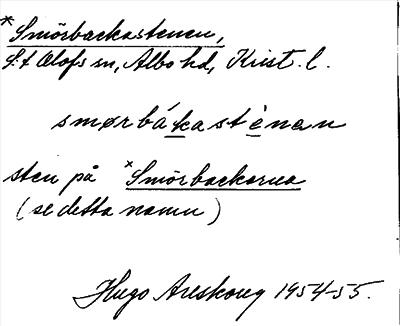 *Smörbackastenen,
S:t Olofs sn, Albo hd, Krist. l.
smørbákastènen
sten på *Smörbackarna
(se detta namn)
Hugo Areskoug 1954-55.